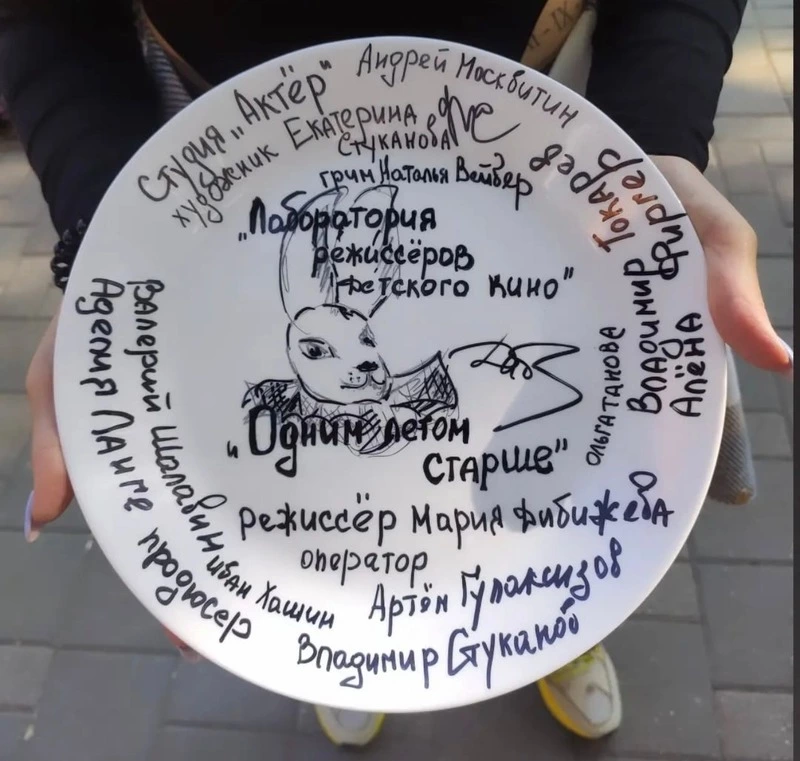 Андрей Москвитин
Студия "Актёр"
художник Екатерина
Стуканова
грим Наталья Вейбер
"Лаборатория
режиссёров
детского кино"
Владимир Токарев
Алёна Фиргер
Ольга Танова
"Одним летом
старше"
режиссёр Мария Фибижева
оператор
Артём Гулаксизов
Владимир Стуканов
Иван Хашин
Валерий Шалавин
Аделия Ланге продюсер